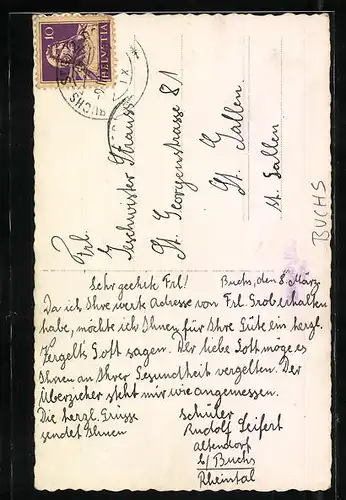 10
HELVETIA
BUCHS
Frl.
Geschwister Strauss
St. Georgenstrasse 81
St. Gallen
St. Gallen
BUCHS
Sehr geehrte Frl!
Buchs, den 8. März
Da ich Ihre werte Adresse von Frl. Grob erhalten
habe, möcht ich Ihnen für Ihre Güte ein herzl.
Vergelts Gott sagen. Der liebe Gott möge es
Ihnen an Ihrer Gesundheit vergelten. Der
Überzieher steht mir wie angemessen.
Die herzl. Grüsse
sendet Ihnen
Schüler
Rudolf Seifert
Altendorf
b/ Buchs
Rheintal